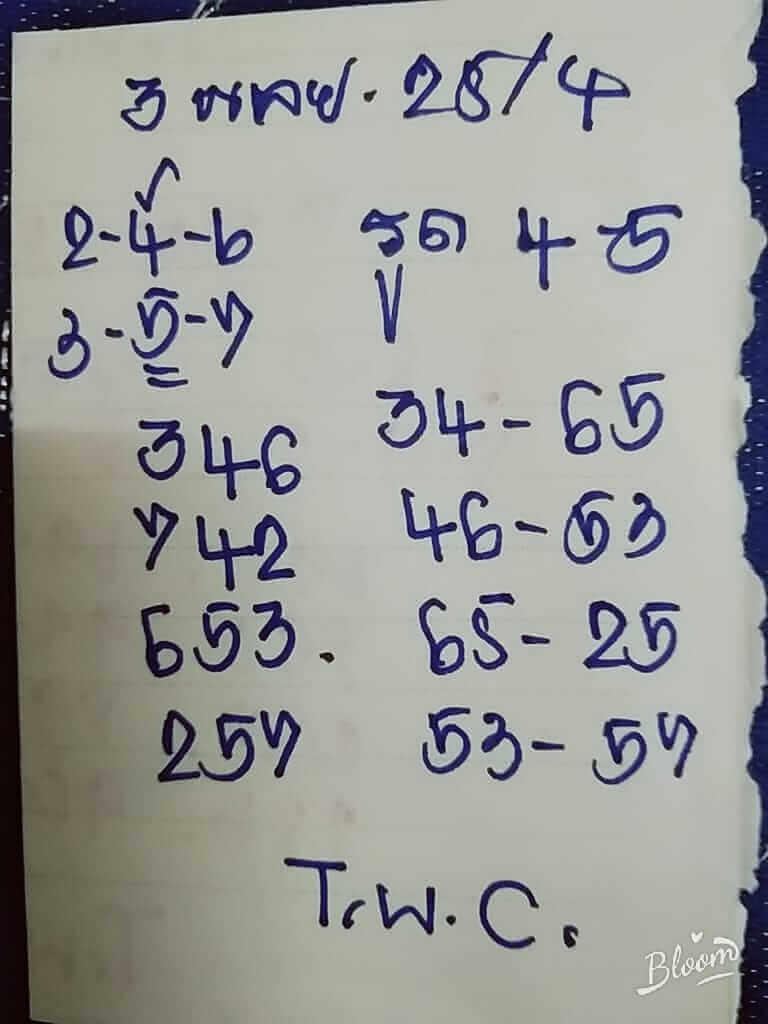 3 พลอย. 25/4
2-4-6 รูด 4-5
3-5-7
346 34-65
742 46-53
653. 65-25
257 53-57
T.พ.C.
Bloom